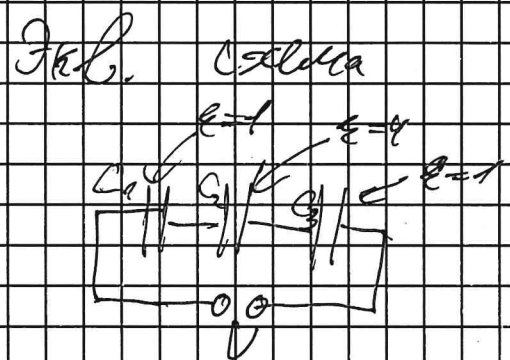 Экв. схема
ε=1
ε=4
C₁ C₂ C₃ ε=1
U